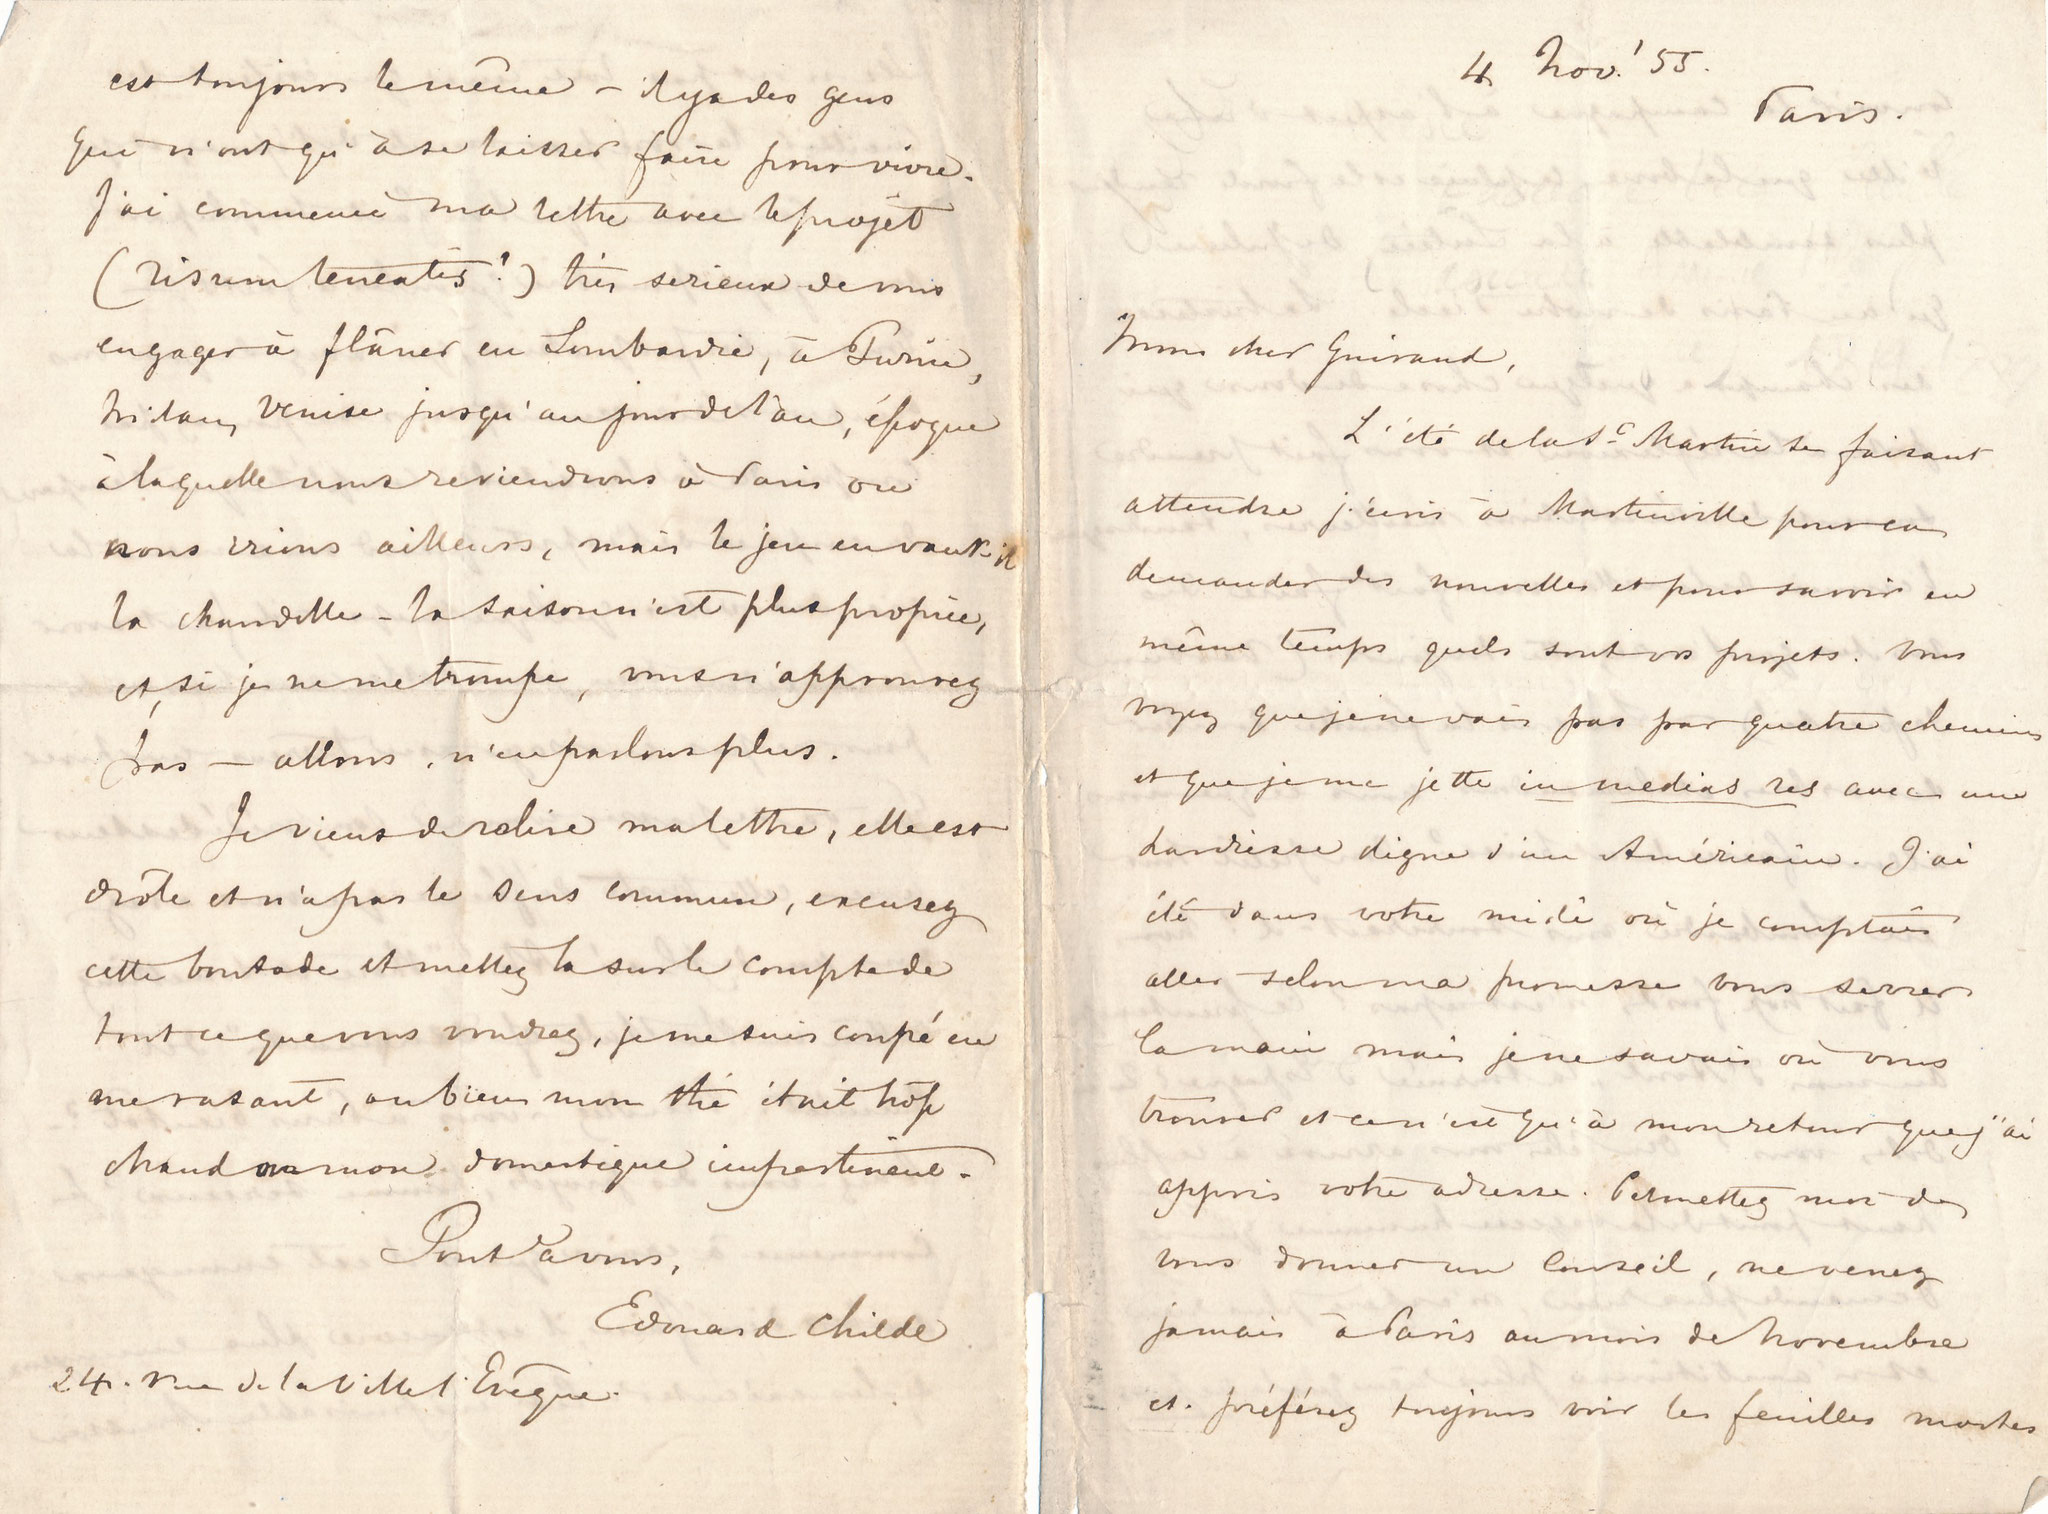 4 Nov. '55.
Paris.
Mon cher Guiraud,
L'été de la St Martin se faisant
attendre j'écris à Martinville pour en
demander des nouvelles et pour savoir en
même temps quels sont vos projets. Vous
voyez que je ne vais pas par quatre chemins
et que je me jette in medias res avec une
hardiesse digne d'un Américain. J'ai
été dans votre midi où je comptais
aller selon ma promesse vous serrer
la main mais je ne savais où vous
trouver et ce n'est qu'à mon retour que j'ai
appris votre adresse. Permettez moi de
vous donner un conseil, ne venez
jamais à Paris au mois de Novembre
et préférez toujours voir les feuilles mortes
est toujours le même – il y a des gens
qui n'ont qu'à se laisser faire pour vivre.
J'ai commencé ma lettre avec le projet
(risum teneatis?) très serieux de vous
engager à flâner en Lombardie, à Turin,
Milan, Venise jusqu'au jour de l'an, époque
à laquelle nous reviendrons à Paris ou
nous irions ailleurs, mais le jeu en vaut-il
la chandelle – la saison n'est plus propice,
et, si je ne me trompe, vous n'approuvez
pas – allons, n'en parlons plus.
Je viens de relire ma lettre, elle est
drôle et n'a pas le sens commun, excusez
cette boutade et mettez la sur le compte de
tout ce que vous voudrez, je me suis coupé en
me rasant, ou bien mon thé était trop
chaud ou mon domestique impertinent.
Tout à vous,
Edouard Childe
24. rue de la Ville l'Evêque.